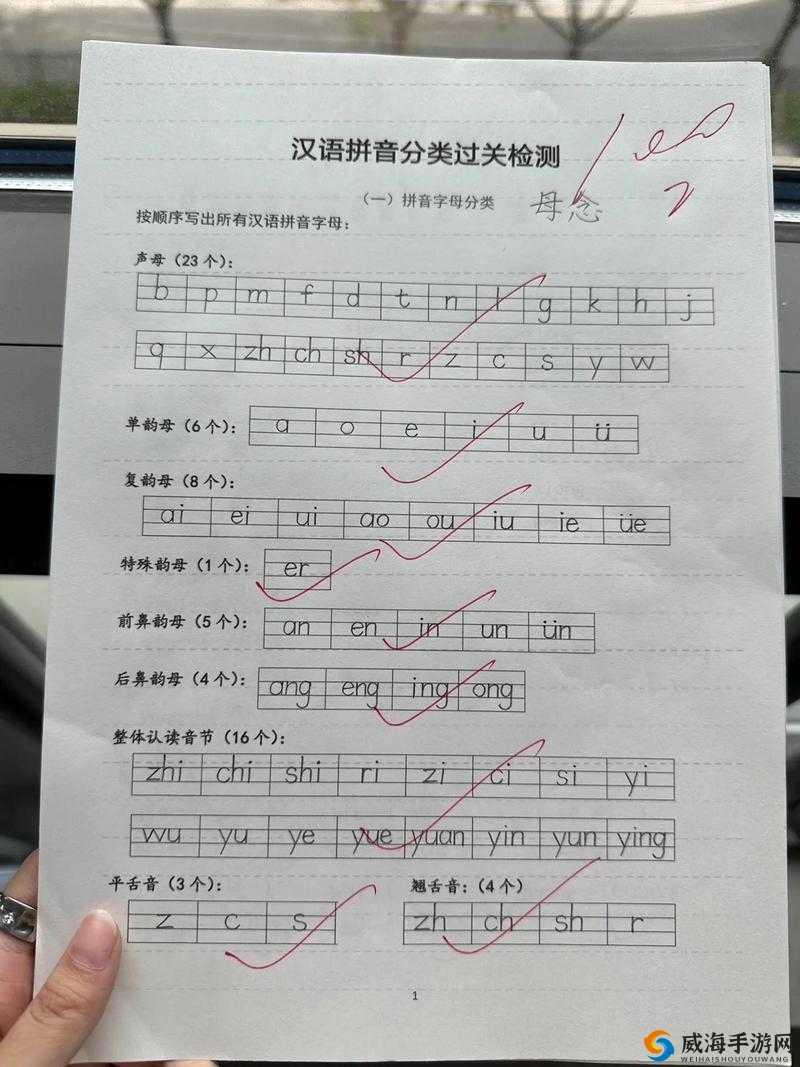 汉语拼音分类过关检测
100
(一)拼音字母分类 母念
按顺序写出所有汉语拼音字母:
声母(23个):
b p m f d t n l g k h j
q x zh ch sh r z c s y w
单韵母(6个): a o e i u ü
复韵母(8个):
ai ei ui ao ou iu ie üe
特殊韵母(1个): er
前鼻韵母(5个): an en in un ün
后鼻韵母(4个): ang eng ing ong
整体认读音节(16个):
zhi chi shi ri zi ci si yi
wu yu ye yue yuan yin yun ying
平舌音(3个): 翘舌音:(4个)
z c s zh ch sh r
1
威海手游网
WEIHAISHOUYOUWANG